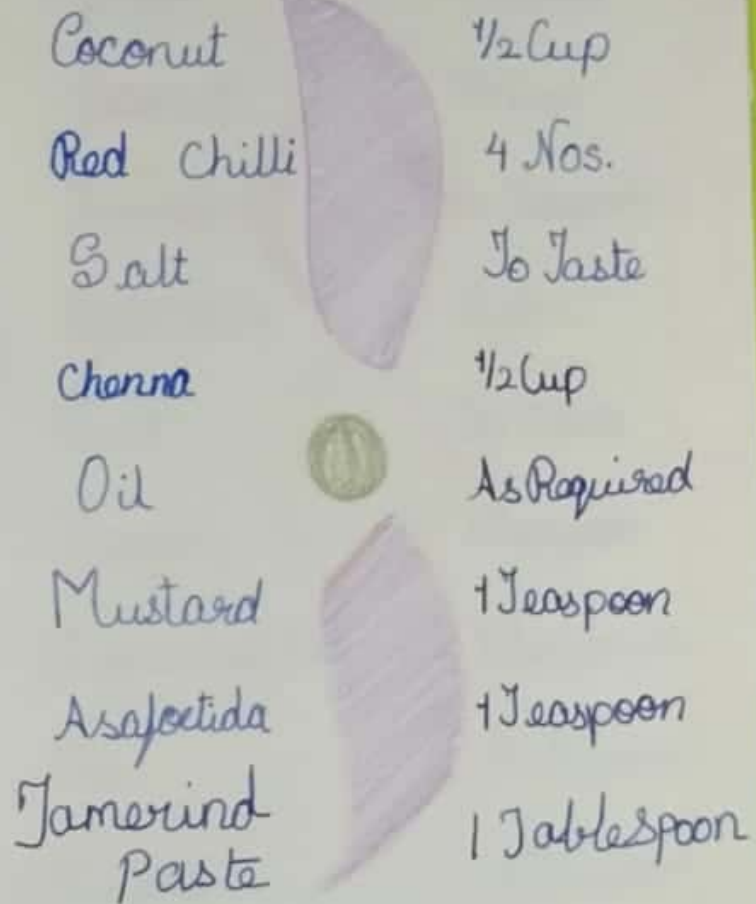 Coconut 1/2 Cup
Red Chilli 4 Nos.
Salt To Taste
Chenna 1/2 Cup
Oil As Required
Mustard 1 Teaspoon
Asafoetida 1 Teaspoon
Tamerind
Paste 1 Tablespoon